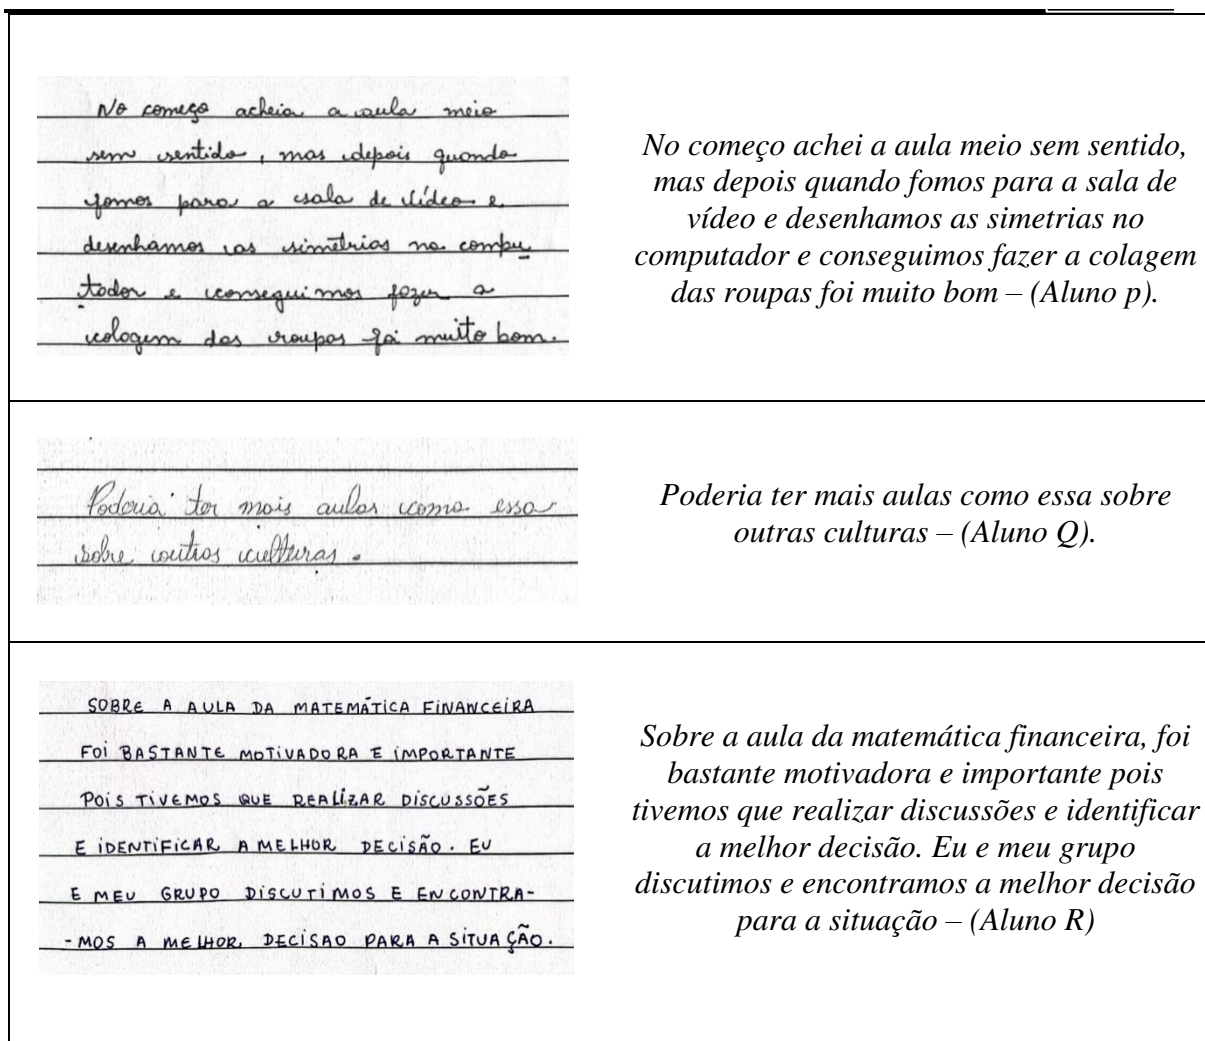 No começo acheia a aula meio
sem sentido, mas depois quando
fomos para a sala de vídeo e
desenhamos as simetrias no compu
tador e conseguimos fazer a
colagem das roupas foi muito bom.
No começo achei a aula meio sem sentido,
mas depois quando fomos para a sala de
vídeo e desenhamos as simetrias no
computador e conseguimos fazer a colagem
das roupas foi muito bom – (Aluno p).
Poderia ter mais aulas como essa
sobre outras culturas.
Poderia ter mais aulas como essa sobre
outras culturas – (Aluno Q).
SOBRE A AULA DA MATEMÁTICA FINANCEIRA
FOI BASTANTE MOTIVADORA E IMPORTANTE
POIS TIVEMOS QUE REALIZAR DISCUSSÕES
E IDENTIFICAR A MELHOR DECISÃO. EU
E MEU GRUPO DISCUTIMOS E ENCONTRA-
-MOS A MELHOR DECISAO PARA A SITUAÇÃO.
Sobre a aula da matemática financeira, foi
bastante motivadora e importante pois
tivemos que realizar discussões e identificar
a melhor decisão. Eu e meu grupo
discutimos e encontramos a melhor decisão
para a situação – (Aluno R)